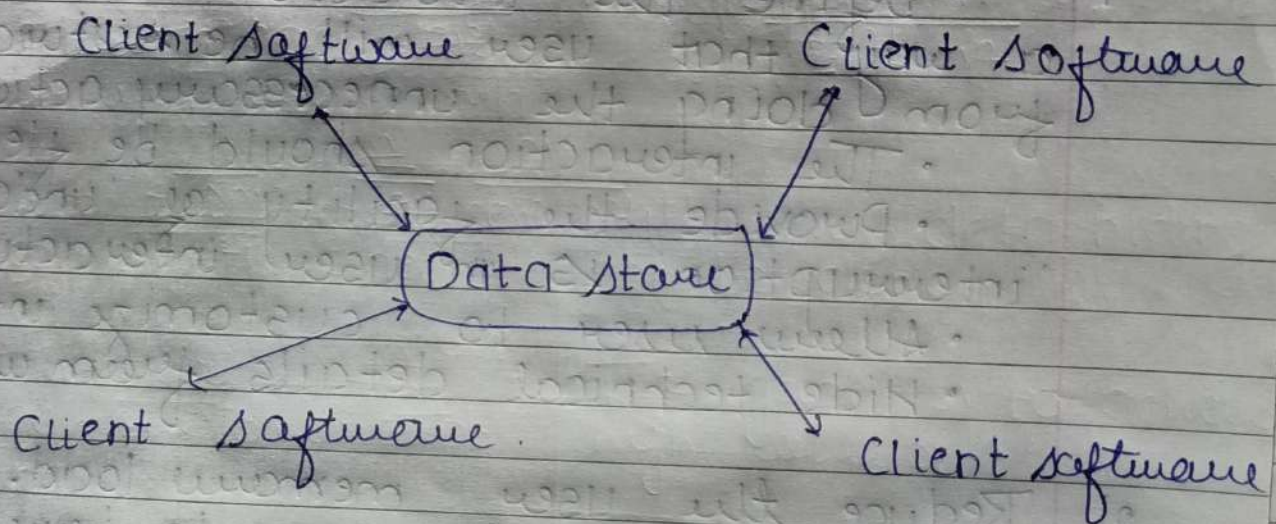 Client software
Client software
Data store
Client software.
Client software